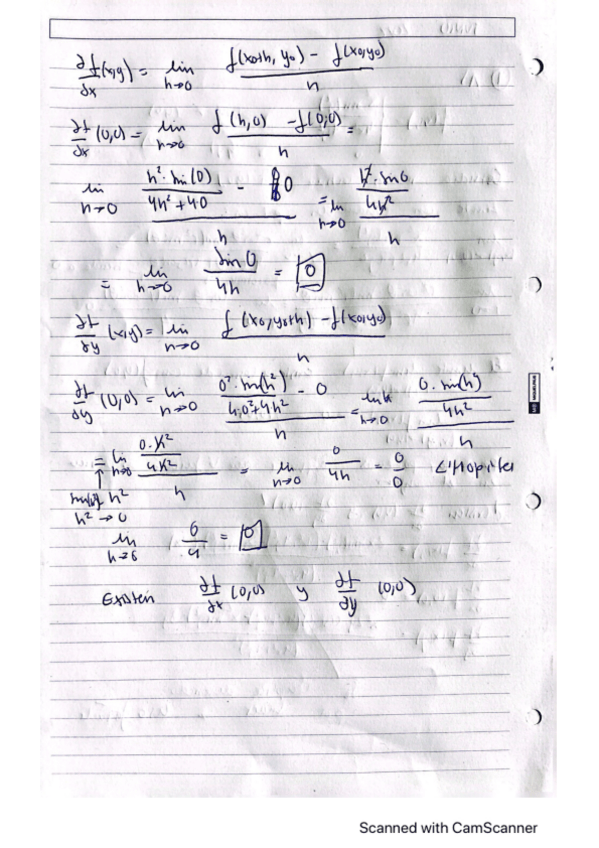 ∂f/∂x (x,y) = lim h→0 (f(x0+h, y0) - f(x0,y0)) / h
∂f/∂x (0,0) = lim h→0 (f(h,0) - f(0,0)) / h =
lim h→0 ((h² · sin(0)) / (4h²+4·0) - 0) / h = lim h→0 ((h² · sin 0) / (4h²)) / h
= lim h→0 sin 0 / 4h = 0
∂f/∂y (x,y) = lim h→0 (f(x0,y0+h) - f(x0,y0)) / h
∂f/∂y (0,0) = lim h→0 ((0² · sin(h²)) / (4·0²+4h²) - 0) / h = lim h→0 ((0 · sin(h²)) / (4h²)) / h
= lim h→0 ((0·h²) / (4h²)) / h = lim h→0 0 / 4h = 0/0 L'Hopital
h²
h² → 0
lim h→0 0/4 = 0
Existen ∂f/∂x (0,0) y ∂f/∂y (0,0)
Scanned with CamScanner